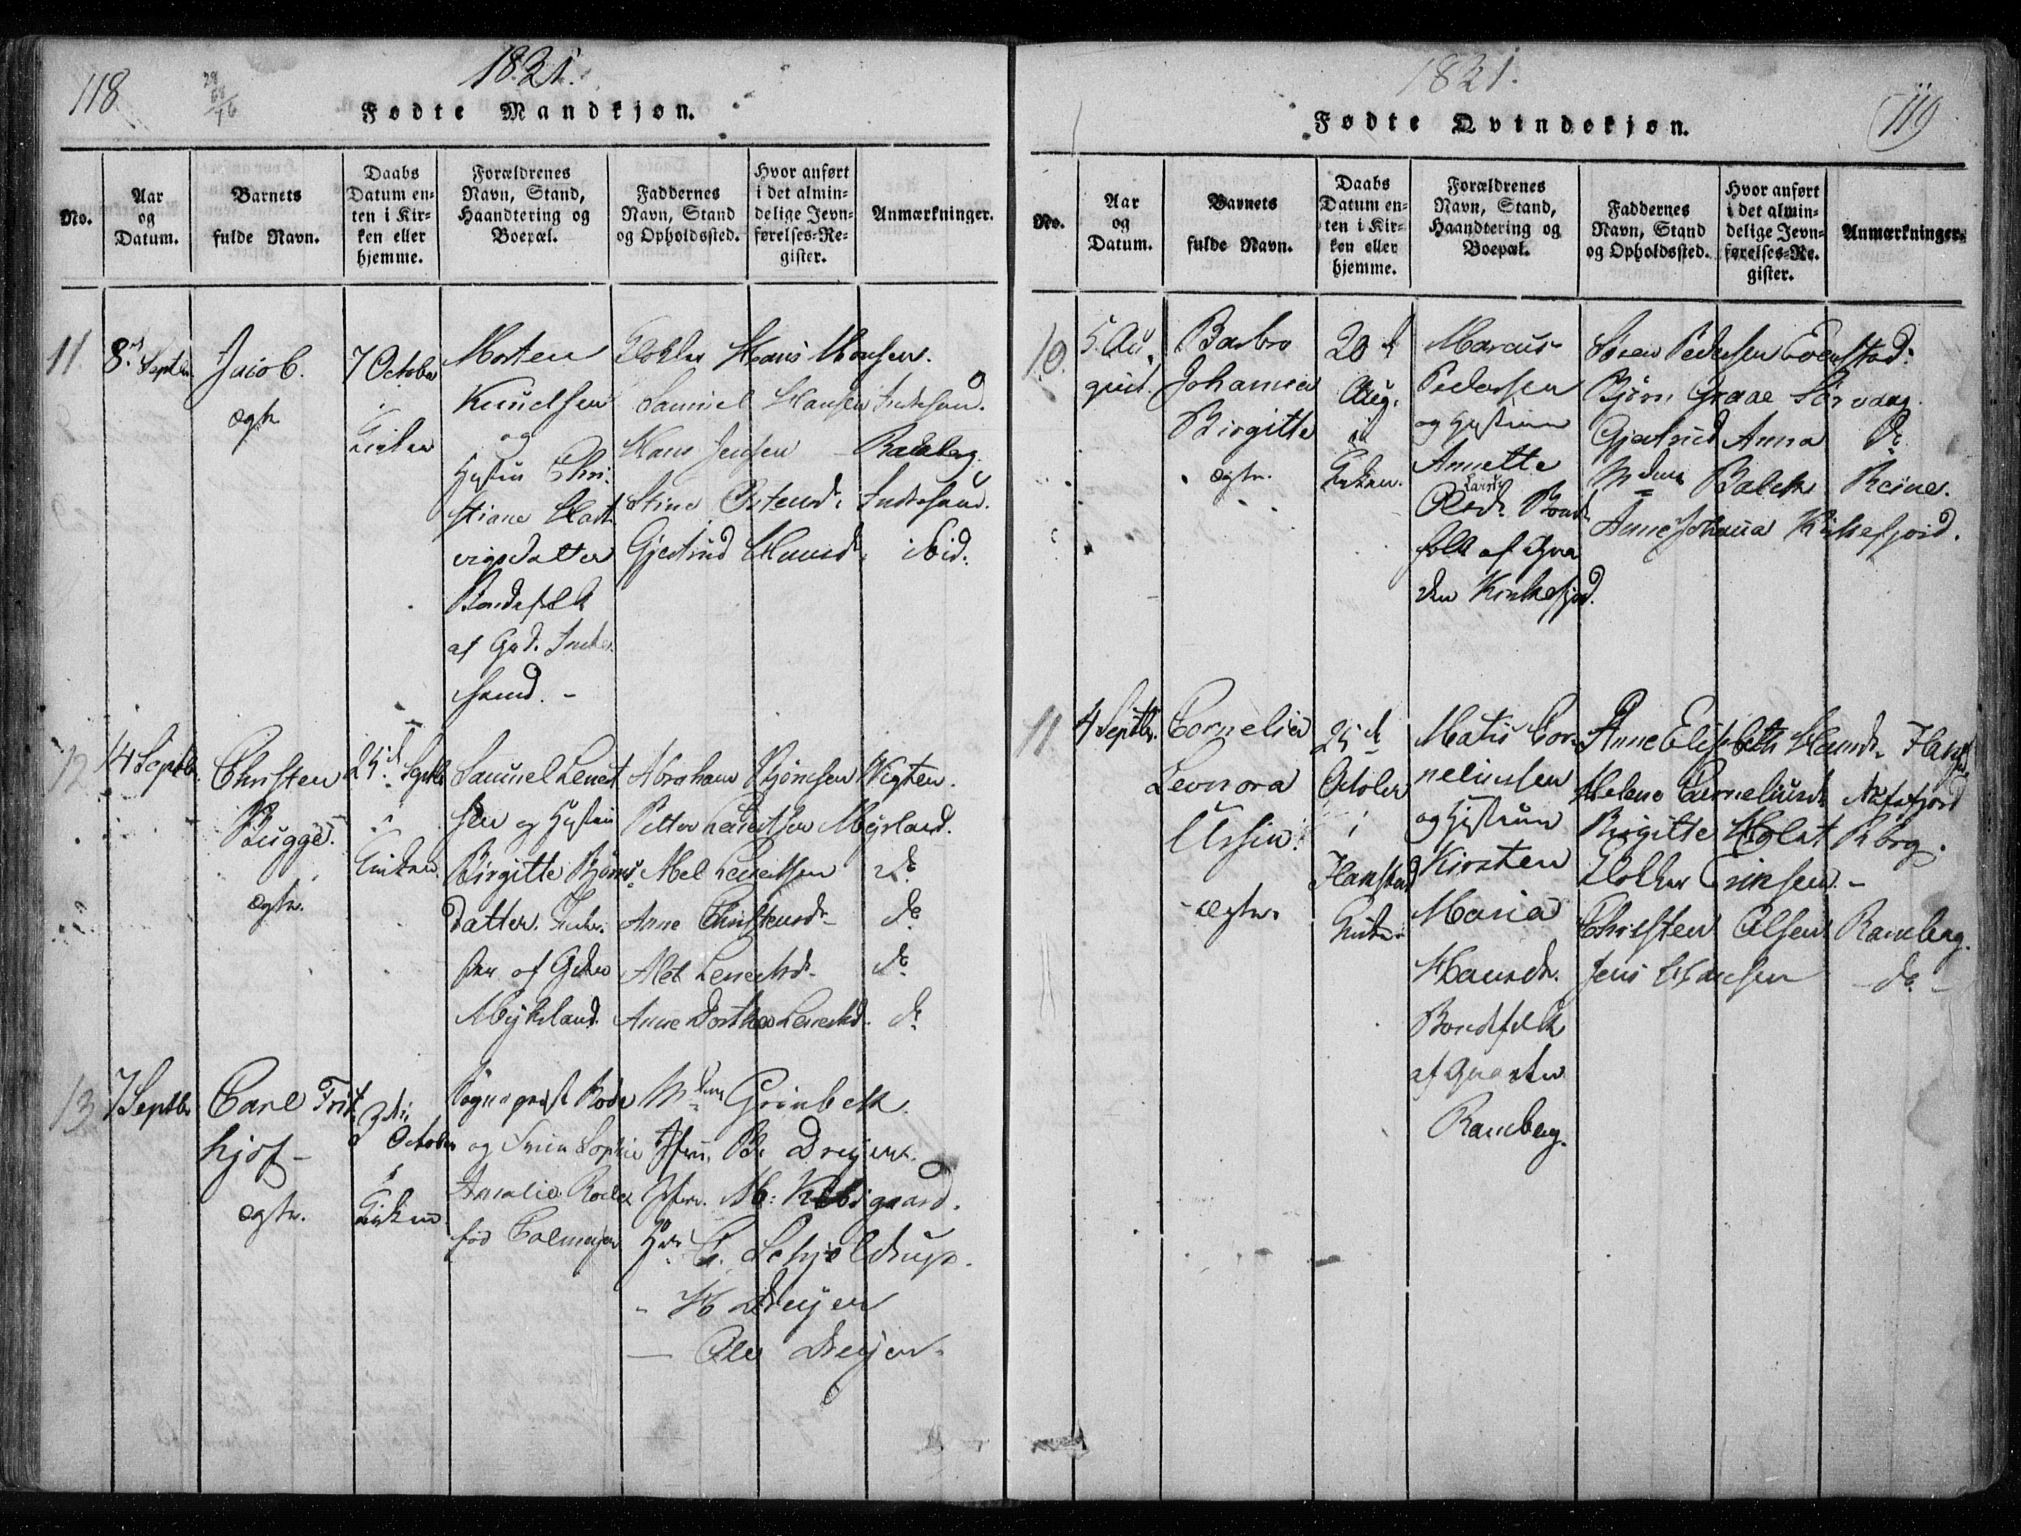 118
28
68
76
1821.
Fødte Mandkjøn.
No.
Aar
og
Datum.
Barnets
fulde Navn.
Daabs
Datum en-
ten i Kir-
ken eller
hjemme.
Forældrenes
Navn, Stand,
Haandtering og
Boepæl.
Faddernes
Navn, Stand
og Opholdssted.
Hvor anført
i det almin-
delige Jevn-
førelses-Re-
gister.
Anmærkninger.
11
8de Septbr
Jacob.
ægte
7 October
i
Kirken
Morten
Knudsen
og
Hustru Chri-
stiane Hart-
vigsdatter
Bondefolk
af Grd. Indre-
sand. -
Klokker Hans Monsen.
Samuel Hansen Indresand.
Hans Jensen - Ramberg.
Stine Ostensdr Indresand.
Gjertrud Hansdr. ibid.
12
14 Septbr.
Christen
Bugge.
ægte.
25de Septbr
i
Kirken
Samuel Lenert-
sen og Hustru
Birgitte Bjørns-
datter.
af Grden
Myhrland.
Abraham Bjørnsen Wigten.
Petter Lenertsen Myrland.
Abel Lenertsen do
Anne Christensdr do
Alet Lenertsdr. do
Anne Dorthea Lenertsd. do
13
7 Septbr
Carl Frit-
hjof -
ægte.
3die
October
i
Kirken
Sogneprest Rode
og Frue Sophie
Amalia Rode
fød Colmejer
Mdme Grönbeck.
Jfru. B. Dreyer.
Jfru. M: Kildgaard.
Hr. C. Schjeldrup.
" H Dreyer
— Ole Dreyer.
1821.
119
Fødte Qvindekjøn.
No.
Aar
og
Datum.
Barnets
fulde Navn.
Daabs
Datum en-
ten i Kir-
ken eller
hjemme.
Forældrenes
Navn, Stand,
Haandtering og
Boepæl.
Faddernes
Navn, Stand
og Opholdssted.
Hvor anført
i det almin-
delige Jevn-
førelses-Re-
gister.
Anmærkninger.
10.
5. Au-
gust.
Barbro
Johanna
Birgitte
ægte.
20de
Aug.
i
Kirken.
Marcus
Pedersen
og Hustrue
Annette
Larsdr
Olsdr. Bonde-
folk af Gaa-
rden Kirkefjord.
Søren Pedersen Evenstad.
Bjørn Graae Sørvaag.
Gjertrud Anna do
Mdme Balck Reine.
Anne Johanna Kirkefjord.
11
4 Septbr.
Cornelia
Leonora
Ursin.
ægte.
25de
October
i
Flakstad
Kirke
Matis Cor-
neliussen
og Hustrue
Kirsten
Maria
Hansdr.
Bondefolk
af Gaarden
Ramberg.
Anne Elisabeth Hansdr Flagst.
Helene Corneliusdr Nufsfjord
Birgitte Holst Borg.
Klokker Erichsen. -
Christen Olsen Ramberg.
Jens Hansen do -